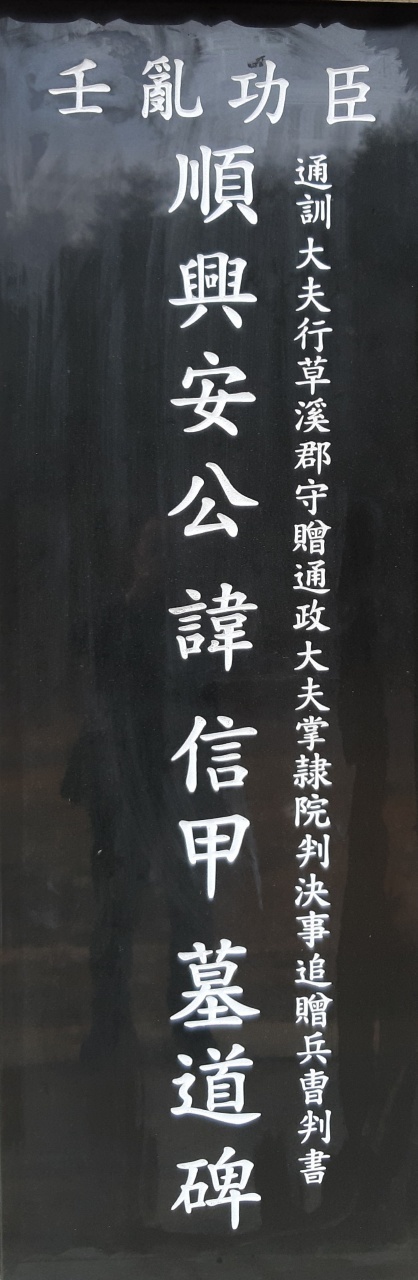 壬亂功臣
通訓大夫行草溪郡守贈通政大夫掌隸院判決事追贈兵曺判書
順興安公諱信甲墓道碑